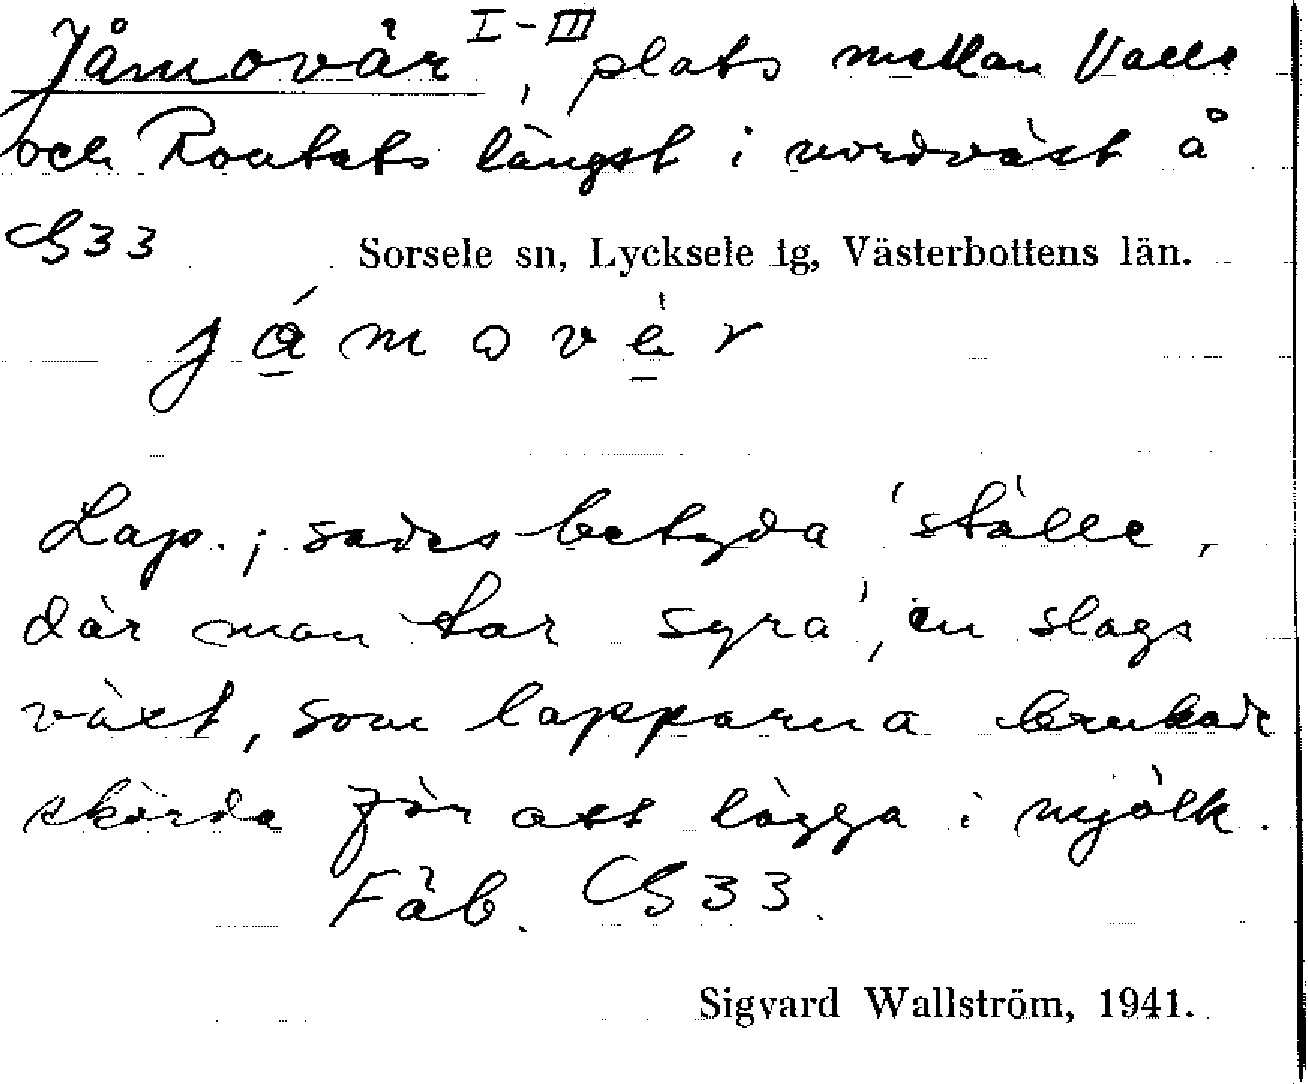 Jåmovär I-III, plats mellan Valle
och Routats längst i nordväst å
CG33
Sorsele sn, Lycksele tg, Västerbottens län.
já̱movè̱r
Lap.; sades betyda 'ställe,
där man tar syra', en slags
växt, som lapparna brukade
skörda för att lägga i mjölk.
Fäb. CG33.
Sigvard Wallström, 1941.